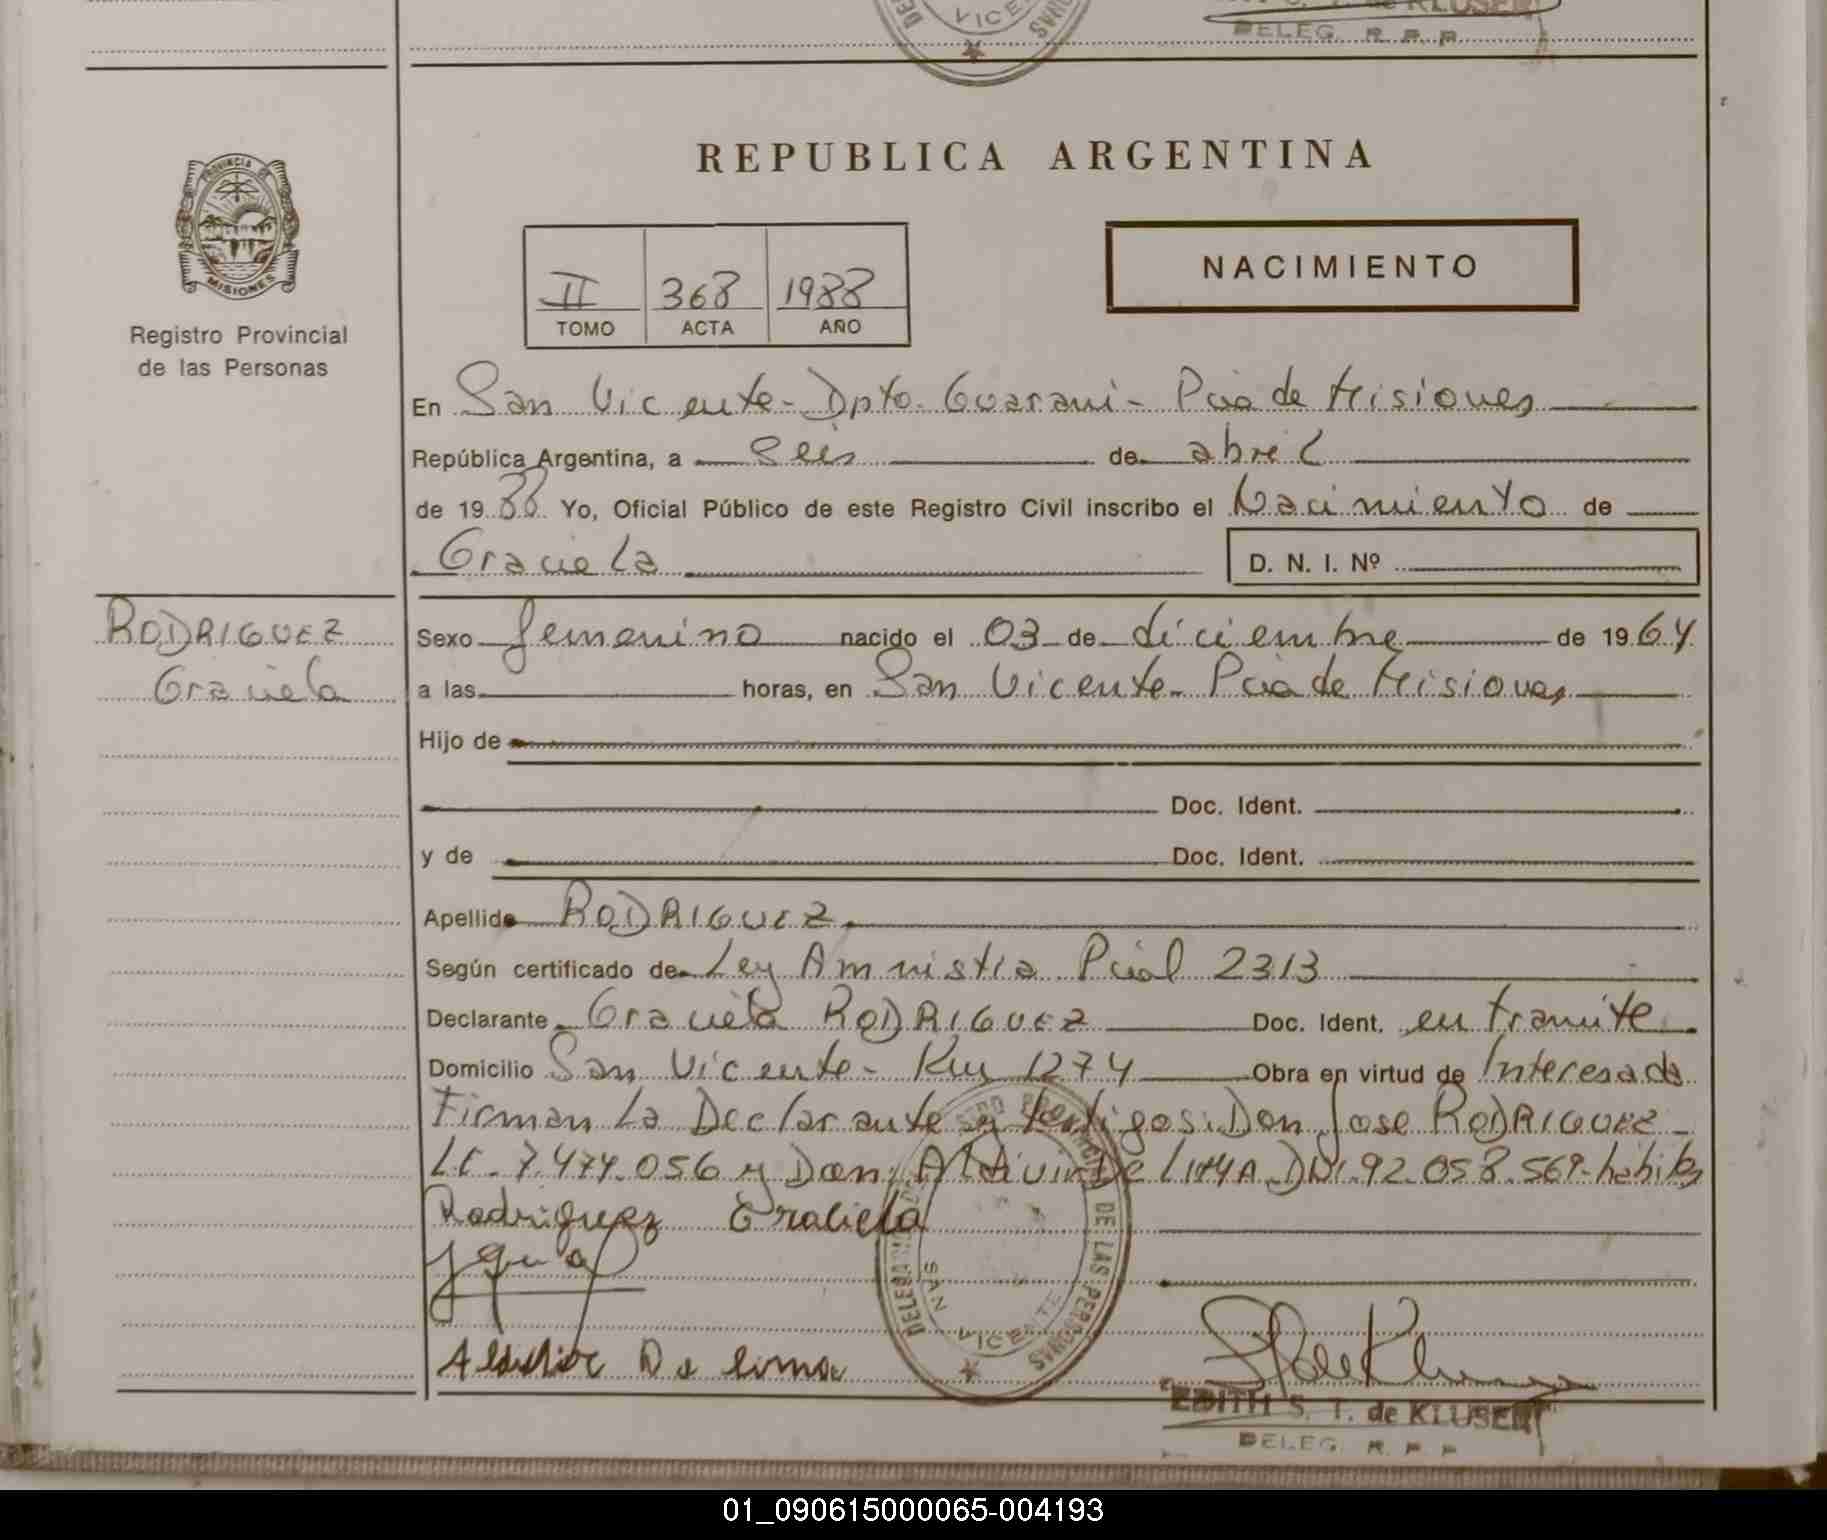 VICEN
DELEG. R. P. P.
REPUBLICA ARGENTINA
PROVINCIA DE
MISIONES
Registro Provincial
de las Personas
II 368 1988
TOMO ACTA AÑO
NACIMIENTO
En San Vicente - Dpto. Guarani - Pcia de Misiones
República Argentina, a seis de abril
de 1988 Yo, Oficial Público de este Registro Civil inscribo el Nacimiento de
Graciela D. N. I. Nº
RODRIGUEZ
Graciela
Sexo femenino nacido el 03 de diciembre de 1964
a las horas, en San Vicente - Pcia de Misiones
Hijo de
Doc. Ident.
y de Doc. Ident.
Apellido RODRIGUEZ
Según certificado de Ley Amnistia Pcial 2313
Declarante Graciela RODRIGUEZ Doc. Ident. en tramite
Domicilio San Vicente - Km 1274 Obra en virtud de Interesada
Firman la Declarante y testigos: Don Jose RODRIGUEZ -
LE. 7.474.056 y Don DE LIMA DNI. 92.058.569 - habiles
Rodriguez Graciela
De lima
DE LAS PERSONAS
SAN VICENTE
EDITH S. T. de KLUSER
DELEG. R. P. P.
01_090615000065-004193